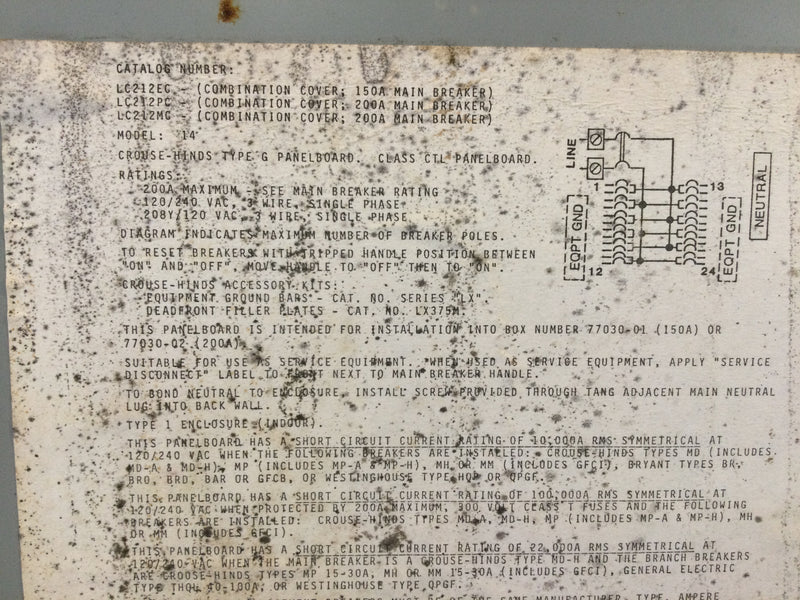 CATALOG NUMBER:
LC212EC - (COMBINATION COVER; 150A MAIN BREAKER)
LC212PC - (COMBINATION COVER; 200A MAIN BREAKER)
LC212MC - (COMBINATION COVER; 200A MAIN BREAKER)
MODEL: 14
CROUSE-HINDS TYPE G PANELBOARD. CLASS CTL PANELBOARD.
RATINGS:
200A MAXIMUM - SEE MAIN BREAKER RATING
120/240 VAC, 3 WIRE, SINGLE PHASE
208Y/120 VAC, 3 WIRE, SINGLE PHASE
DIAGRAM INDICATES MAXIMUM NUMBER OF BREAKER POLES.
TO RESET BREAKERS WITH TRIPPED HANDLE POSITION BETWEEN
"ON" AND "OFF", MOVE HANDLE TO "OFF" THEN TO "ON".
CROUSE-HINDS ACCESSORY KITS:
EQUIPMENT GROUND BARS - CAT. NO. SERIES "LX".
DEADFRONT FILLER PLATES - CAT. NO. LX375M.
THIS PANELBOARD IS INTENDED FOR INSTALLATION INTO BOX NUMBER 77030-01 (150A) OR
77030-02 (200A).
SUITABLE FOR USE AS SERVICE EQUIPMENT. WHEN USED AS SERVICE EQUIPMENT, APPLY "SERVICE
DISCONNECT" LABEL TO FRONT NEXT TO MAIN BREAKER HANDLE.
TO BOND NEUTRAL TO ENCLOSURE, INSTALL SCREW PROVIDED THROUGH TANG ADJACENT MAIN NEUTRAL
LUG INTO BACK WALL.
TYPE 1 ENCLOSURE (INDOOR).
THIS PANELBOARD HAS A SHORT CIRCUIT CURRENT RATING OF 10,000A RMS SYMMETRICAL AT
120/240 VAC WHEN THE FOLLOWING BREAKERS ARE INSTALLED: CROUSE-HINDS TYPES MD (INCLUDES
MD-A & MD-H), MP (INCLUDES MP-A & MP-H), MH OR MM (INCLUDES GFCI), BRYANT TYPES BR,
BRO, BRD, BAR OR GFCB, OR WESTINGHOUSE TYPE HQP OR QPGF.
THIS PANELBOARD HAS A SHORT CIRCUIT CURRENT RATING OF 100,000A RMS SYMMETRICAL AT
120/240 VAC WHEN PROTECTED BY 200A MAXIMUM, 300 VOLT CLASS T FUSES AND THE FOLLOWING
BREAKERS ARE INSTALLED: CROUSE-HINDS TYPES MD-A, MD-H, MP (INCLUDES MP-A & MP-H), MH
OR MM (INCLUDES GFCI).
THIS PANELBOARD HAS A SHORT CIRCUIT CURRENT RATING OF 22,000A RMS SYMMETRICAL AT
120/240 VAC WHEN THE MAIN BREAKER IS A CROUSE-HINDS TYPE MD-H AND THE BRANCH BREAKERS
ARE CROUSE-HINDS TYPES MP 15-30A, MH OR MM 15-30A (INCLUDES GFCI), GENERAL ELECTRIC
TYPE THQL 40-100A, OR WESTINGHOUSE TYPE QPGF.
SAME MANUFACTURER, TYPE, AMPERE
LINE
1
13
EQPT GND
12
24
EQPT GND
NEUTRAL